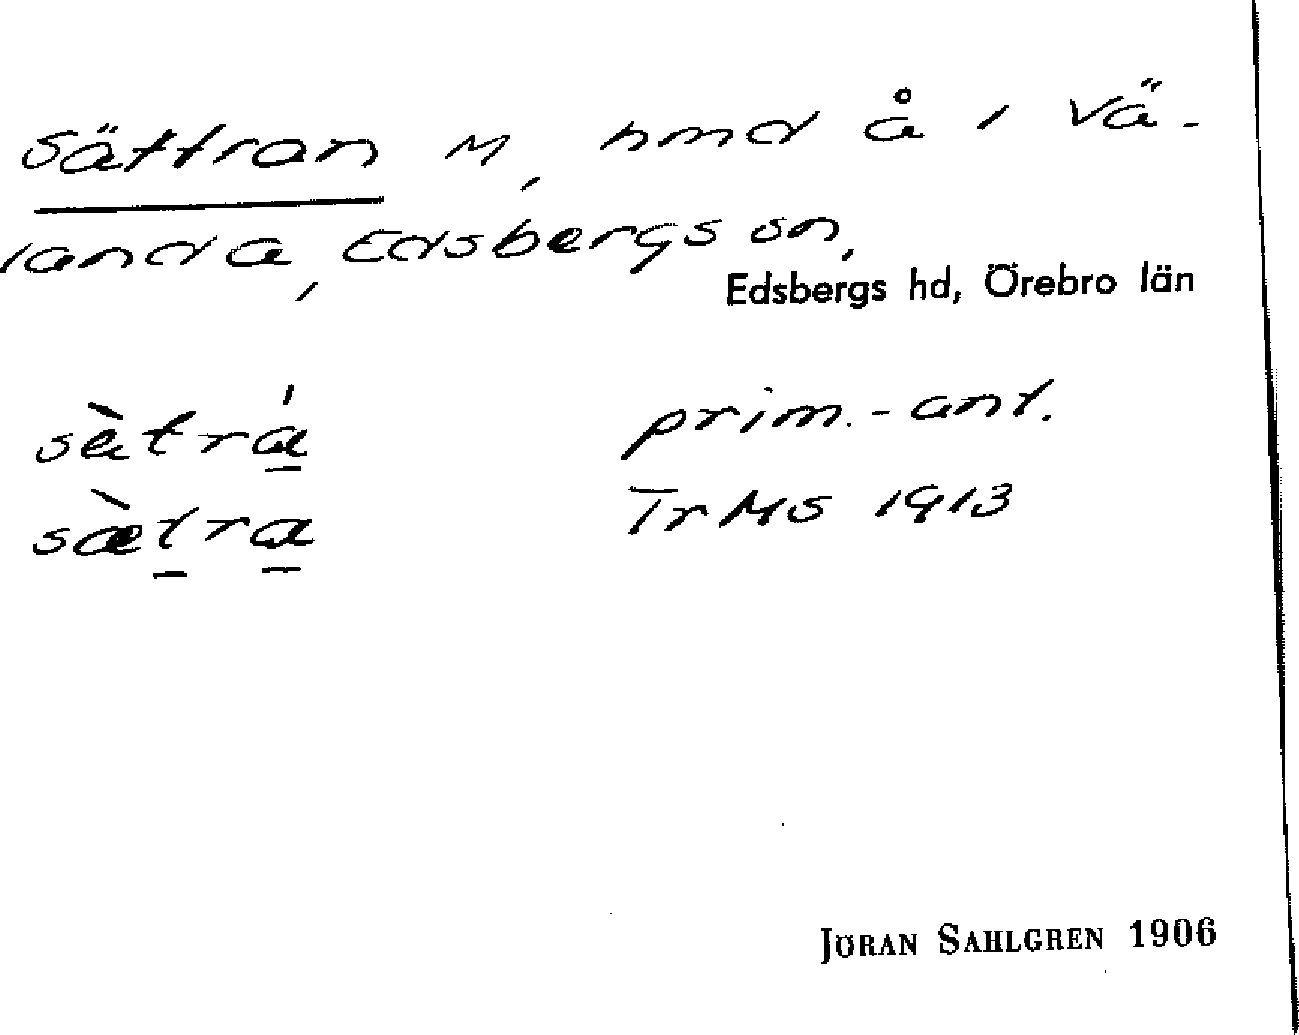 Sättran M, hmd å i Vä-
landa, Edsbergs sn,
Edsbergs hd, Örebro län
sètrá prim.-ant.
sæ̀tra TrMs 1913
JÖRAN SAHLGREN 1906